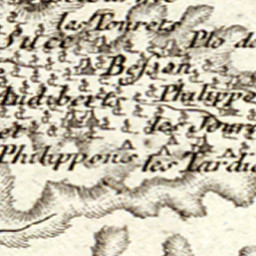 les Tourets
Suce
Plo de
Besson
Audiberts
Philippe
les Jour
Philippons
les Tardi